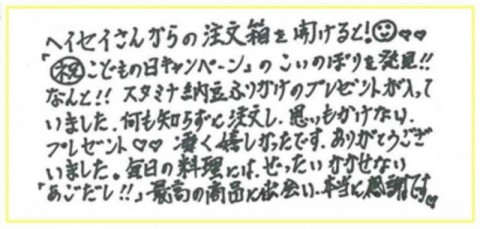 ヘイセイさんからの注文箱を開けると!☺♡♡
「㊗こどもの日キャンペーン」のこいのぼりを発見!!
なんと!! スタミナ納豆ふりかけのプレゼントが入って
いました。何も知らずに注文し、思いもかけない、
プレゼント♡♡ 凄く嬉しかったです。ありがとうござ
いました。毎日の料理には、ぜったいかかせない
「あごだし!!」最高の商品に出会い、本当に感謝です♡